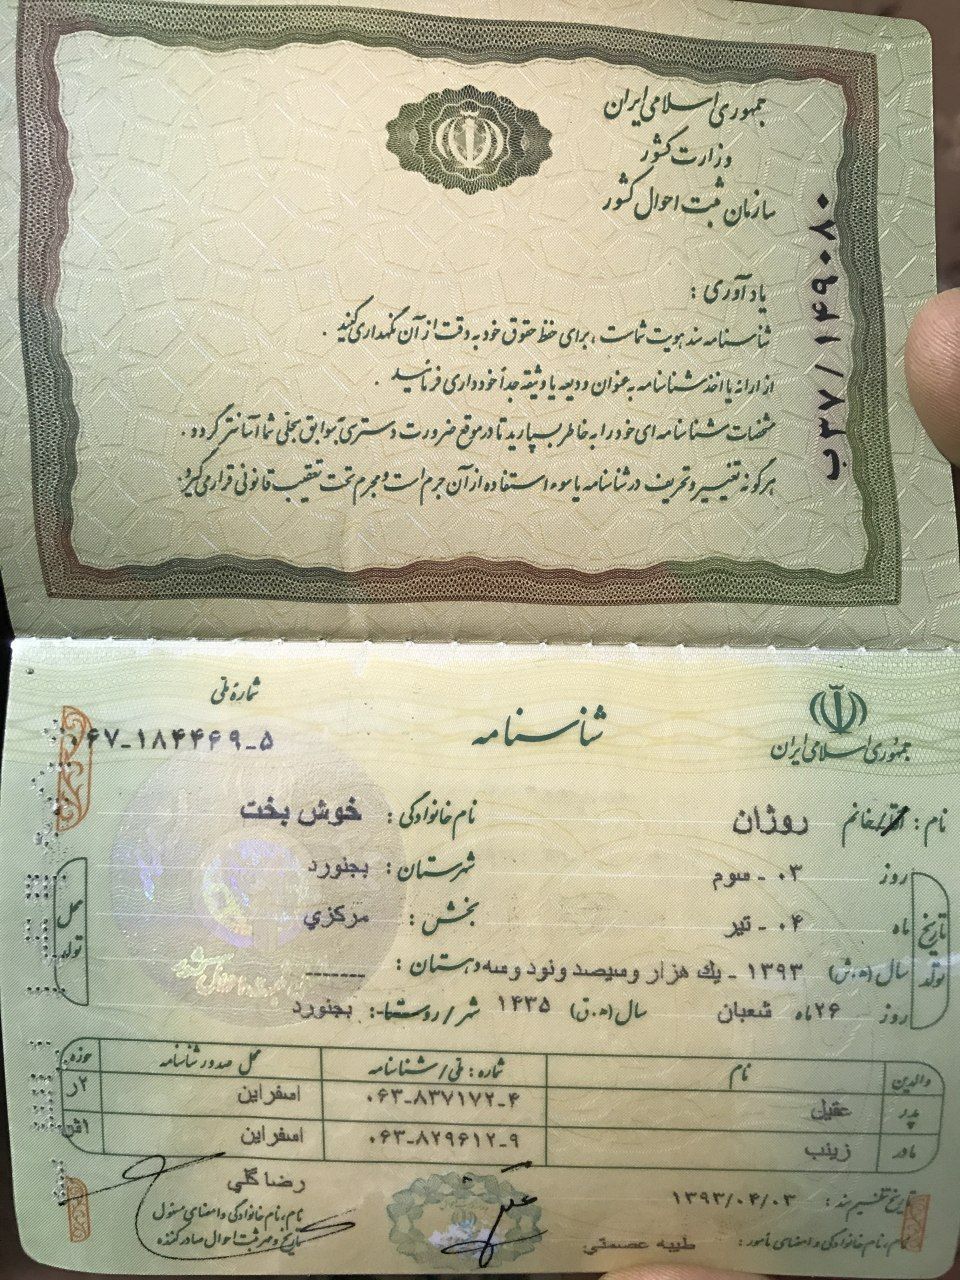 جمهوری اسلامی ایران
وزارت کشور
سازمان ثبت احوال کشور
ب۳۷/۱۴۹۰۸۰
یادآوری :
شناسنامه سند هویت شماست ، برای حفظ حقوق خود به دقت از آن نگهداری کنید .
از ارائه یا اخذ شناسنامه به عنوان ودیعه یا وثیقه جداً خودداری فرمائید .
مشخصات شناسنامه ای خود را به خاطر بسپارید تا در موقع ضرورت دسترسی به سوابق سجلی شما آسانتر گردد .
هرگونه تغییر و تحریف در شناسنامه یا سوء استفاده از آن جرم است و مجرم تحت تعقیب قانونی قرار می گیرد.
جمهوری اسلامی ایران
شناسنامه
شماره ملی
۰۶۷-۱۸۴۴۶۹-۵
نام : آقا/خانم روژان نام خانوادگی : خوش بخت
تاریخ تولد
محل تولد
روز ۰۳ - سوم شهرستان : بجنورد
ماه ۰۴ - تیر بخش : مرکزي
سال (ه.ش) ۱۳۹۳ - يك هزار وسيصد ونود وسه دهستان : -------
روز ۲۶ ماه شعبان سال (ه.ق) ۱۴۳۵ شهر/روستا : بجنورد
والدین نام شماره : ملی/شناسنامه محل صدور شناسنامه حوزه
پدر عقيل ۰۶۳-۸۳۷۱۷۲-۴ اسفراين ۲ر
مادر زينب ۰۶۳-۸۲۹۶۱۲-۹ اسفراين
تاریخ تنظیم سند : ۱۳۹۳/۰۴/۰۳
نام، نام خانوادگی و امضای مأمور : طيبه عصمتي
رضا گلي
نام، نام خانوادگی و امضای مسئول
تاریخ و مهر ثبت احوال صادر کننده